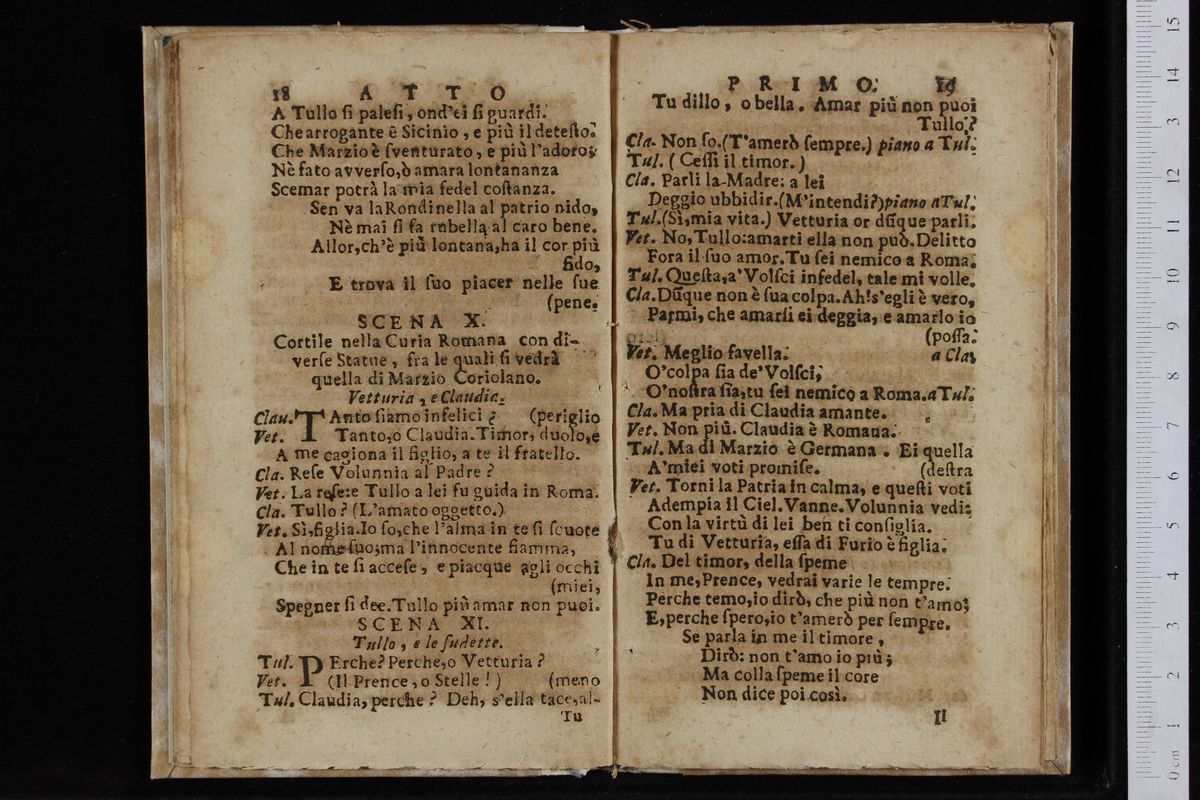 18 A T T O
A Tullo ſi paleſi, ond'ei ſi guardi.
Che arrogante è Sicinio, e più il deteſto.
Che Marzio è ſventurato, e più l'adoro;
Nè fato avverſo, ò amara lontananza
Scemar potrà la mia fedel coſtanza.
Sen va la Rondinella al patrio nido,
Nè mai ſi fa rubella al caro bene.
Allor, ch'è più lontana, ha il cor più
fido,
E trova il ſuo piacer nelle ſue
(pene.
SCENA X.
Cortile nella Curia Romana con di-
verſe Statue, fra le quali ſi vedrà
quella di Marzio Coriolano.
Vetturia, e Claudia.
Clau. TAnto ſiamo infelici? (periglio
Vet. Tanto, o Claudia. Timor, duolo, e
A me cagiona il figlio, a te il fratello.
Cla. Reſe Volunnia al Padre?
Vet. La reſe: e Tullo a lei fu guida in Roma.
Cla. Tullo? (L'amato oggetto.)
Vet. Sì, figlia. Io ſo, che l'alma in te ſi ſcuote
Al nome ſuo; ma l'innocente fiamma,
Che in te ſi acceſe, e piacque agli occhi
(miei,
Spegner ſi dee. Tullo più amar non puoi.
SCENA XI.
Tullo, e le ſudette.
Tul. PErche? Perche, o Vetturia?
Vet. (Il Prence, o Stelle!) (meno
Tul. Claudia, perche? Deh, s'ella tace, al-
Tu
P R I M O. 19
Tu dillo, o bella. Amar più non puoi
Tullo?
Cla. Non ſo. (T'amerò ſempre.) piano a Tul.
Tul. (Ceſſi il timor.)
Cla. Parli la Madre: a lei
Deggio ubbidir. (M'intendi?) piano a Tul.
Tul. (Sì, mia vita.) Vetturia or dũque parli.
Vet. No, Tullo: amarti ella non può. Delitto
Fora il ſuo amor. Tu ſei nemico a Roma.
Tul. Queſta, a' Volſci infedel, tale mi volle.
Cla. Dũque non è ſua colpa. Ah! s'egli è vero,
Parmi, che amarſi ei deggia, e amarlo io
(poſſa.
Vet. Meglio favella. a Cla.
O' colpa ſia de' Volſci,
O' noſtra ſia, tu ſei nemico a Roma. a Tul.
Cla. Ma pria di Claudia amante.
Vet. Non più. Claudia è Romana.
Tul. Ma di Marzio è Germana. Ei quella
A' miei voti promiſe. (deſtra
Vet. Torni la Patria in calma, e queſti voti
Adempia il Ciel. Vanne. Volunnia vedi:
Con la virtù di lei ben ti conſiglia.
Tu di Vetturia, eſſa di Furio è figlia.
Cla. Del timor, della ſpeme
In me, Prence, vedrai varie le tempre.
Perche temo, io dirò, che più non t'amo;
E, perche ſpero, io t'amerò per ſempre.
Se parla in me il timore,
Dirò: non t'amo io più;
Ma colla ſpeme il core
Non dice poi così.
Il
0 cm 1 2 3 4 5 6 7 8 9 10 11 12 13 14 15